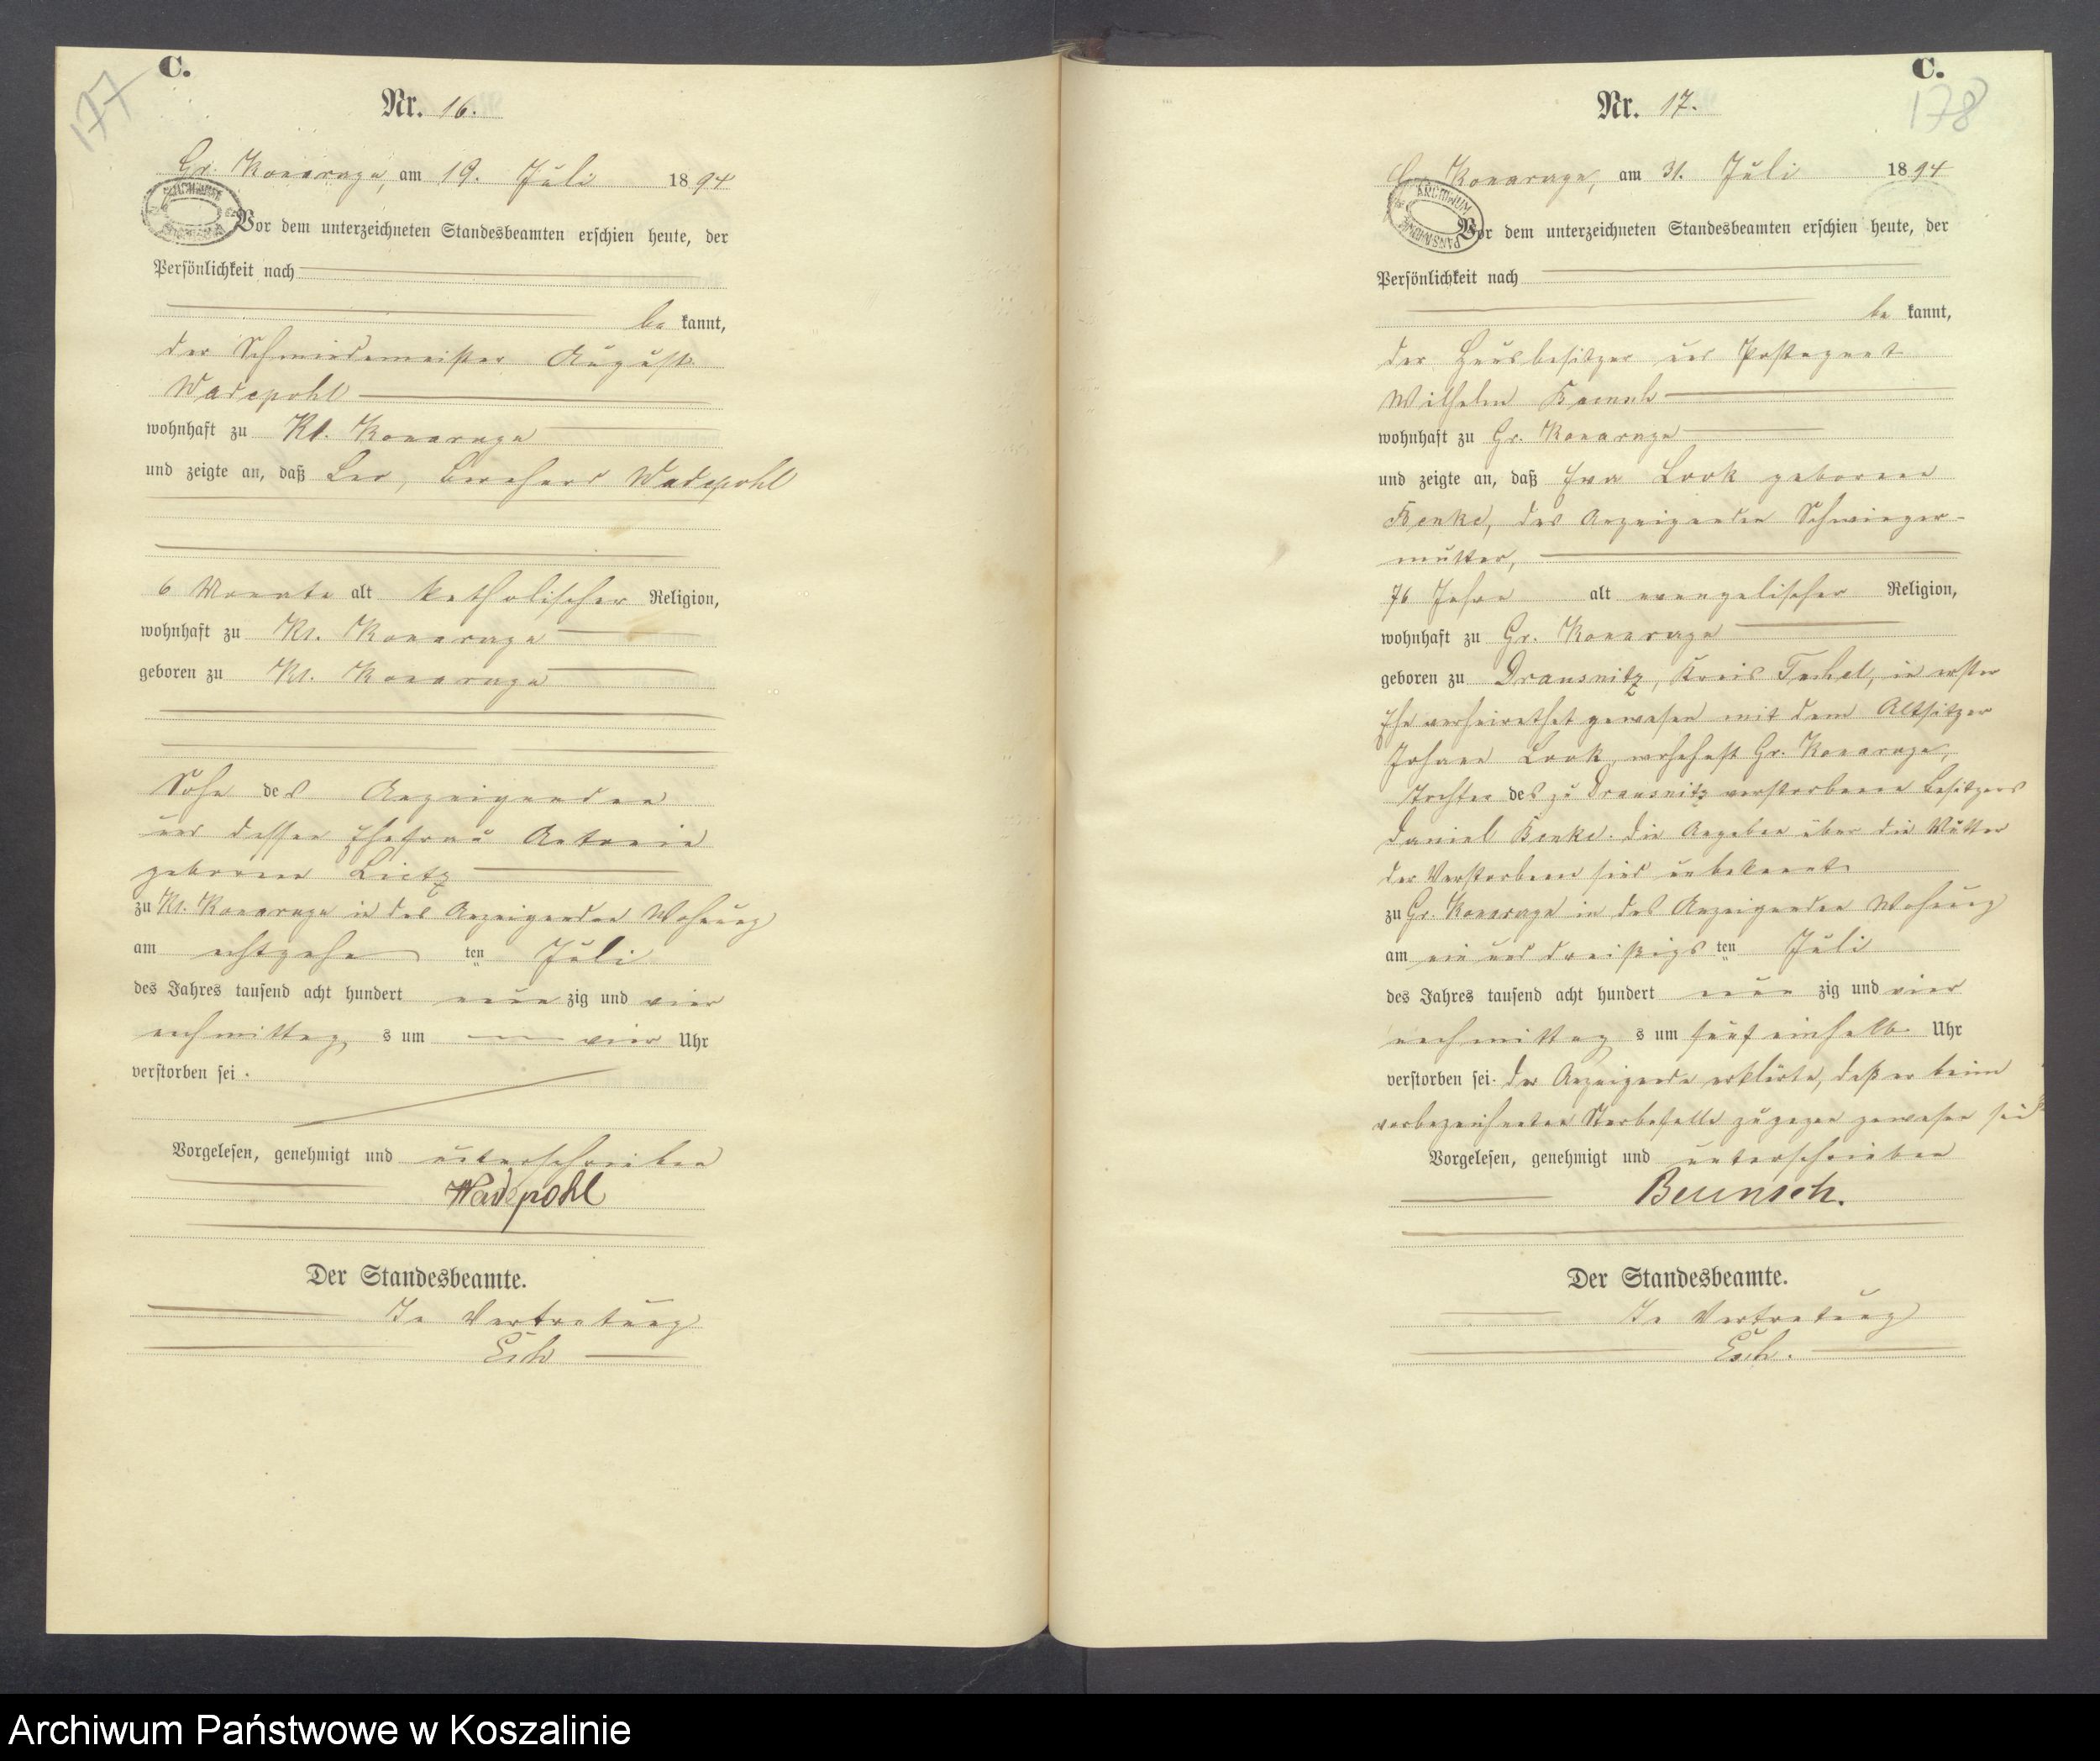 177
C.
Nr. 16.
Gr. Konarzyn, am 19. Juli 1894
Vor dem unterzeichneten Standesbeamten erschien heute, der
Persönlichkeit nach
be kannt,
der Schmiedemeister August
Wadepohl
wohnhaft zu Kl. Konarzyn
und zeigte an, daß Leo, Bernhard Wadepohl
6 Monate alt katholischer Religion,
wohnhaft zu Kl. Konarzyn
geboren zu Kl. Konarzyn
Sohn des Anzeigenden
und dessen Ehefrau Antonie
geborene Lietz
zu Kl. Konarzyn in des Anzeigenden Wohnung
am achtzehn ten Juli
des Jahres tausend acht hundert neun zig und vier
nachmittag s um vier Uhr
verstorben sei.
Vorgelesen, genehmigt und unterschrieben
Wadepohl
Der Standesbeamte.
In Vertretung
Esch
C.
178
Nr. 17.
Gr. Konarzyn, am 31. Juli 1894
ARCHIWUM
Vor dem unterzeichneten Standesbeamten erschien heute, der
Persönlichkeit nach
be kannt,
der Hausbesitzer und Postagent
Wilhelm
wohnhaft zu Gr. Konarzyn
und zeigte an, daß Eva Look geborene
Benke, des Anzeigenden Schwieger-
mutter,
76 Jahre alt evangelischer Religion,
wohnhaft zu Gr. Konarzyn
geboren zu Drausnitz, Kreis Tuchel, in erster
Ehe verheirathet gewesen mit dem Altsitzer
Johann Look, wohnhaft Gr. Konarzyn,
Tochter des zu Drausnitz verstorbenen Besitzers
Daniel Benke. Die Angaben über die Mutter
der Verstorbenen sind unbekannt
zu Gr. Konarzyn in des Anzeigenden Wohnung
am ein und dreißigs ten Juli
des Jahres tausend acht hundert neun zig und vier
nachmittag s um fünf einhalb Uhr
verstorben sei. Der Anzeigende erklärte, daß er beim
vorbezeichneten Sterbefalle zugegen gewesen sei
Vorgelesen, genehmigt und unterschrieben
Der Standesbeamte.
In Vertretung
Esch.
Archiwum Państwowe w Koszalinie